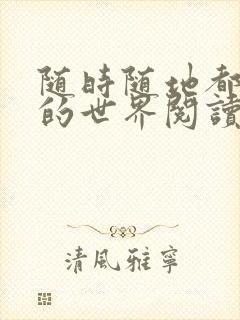 随時随地都
的世界閱讀
清風雅寧